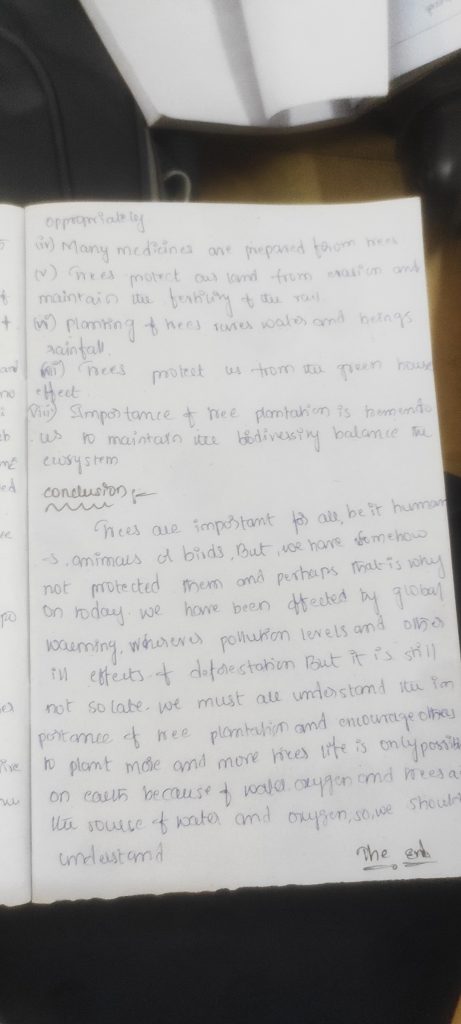 appropriately
(iv) Many medicines are prepared from trees
(v) Trees protect our land from erasion and
maintain the fertility of the soil.
(vi) planting of trees saves water and beings
rainfall.
(vii) Trees protect us from the green house
effect
(viii) Importance of tree plantation is
us to maintain the biodiversity balance the
ecosystem
conclusion :-
Trees are important for all, be it human
-s, animals d birds. But, we have somehow
not protected them and perhaps that is why
on today. we have been affected by global
warming, pollution levels and other
ill effects of deforestation But it is still
not so late. we must all understand the im
portance of tree plantation and encourage others
to plant more and more trees life is only possib
on earth because of water. oxygen and trees a
the source of water and oxygen, so, we should
understand
The end